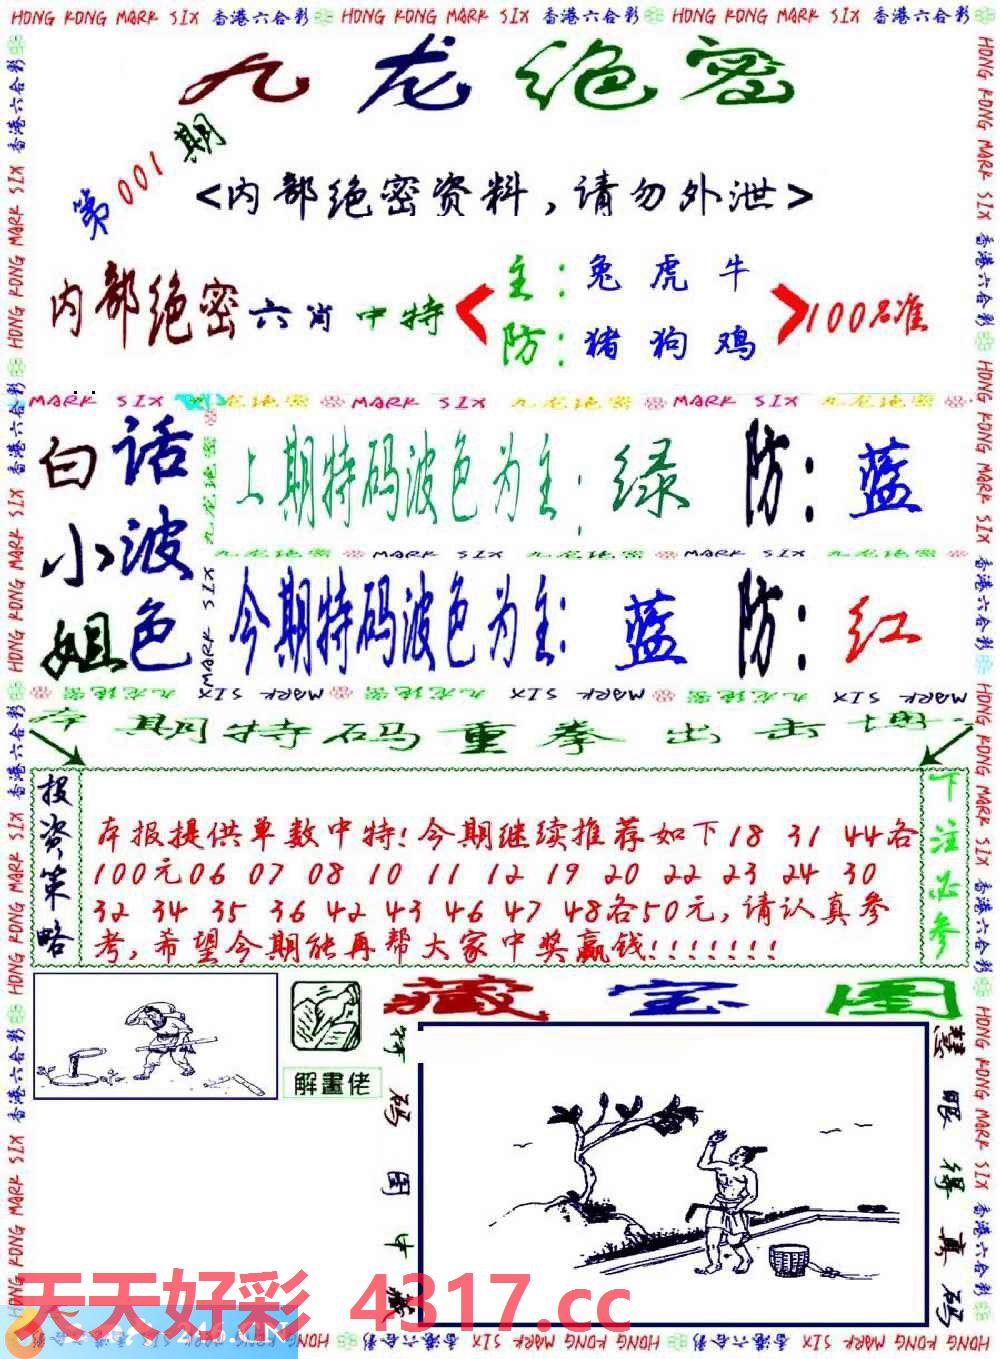 HONG KONG MARK SIX 香港六合彩 HONG KONG MARK SIX 香港六合彩 HONG KONG MARK SIX 香港六合彩
九龙绝密
第001期
<内部绝密资料,请勿外泄>
内部绝密六肖中特
主:兔虎牛
防:猪狗鸡
100%准
MARK SIX 九龙绝密 MARK SIX 九龙绝密 MARK SIX 九龙绝密
白小姐
话波色
上期特码波色为主:绿 防:蓝
九龙绝密 MARK SIX 九龙绝密 MARK SIX 九龙绝密
今期特码波色为主:蓝 防:红
本期特码重拳出击
投资策略
本报提供单数中特!今期继续推荐如下18 31 44各
100元06 07 08 10 11 12 19 20 22 23 24 30
32 34 35 36 42 43 46 47 48各50元,请认真参
考,希望今期能再帮大家中奖赢钱!!!!!!!
下注必参
藏宝图
解畫佬
特码图中藏
慧眼得真码
天天好彩 4317.cc
HONG KONG MARK SIX 香港六合彩